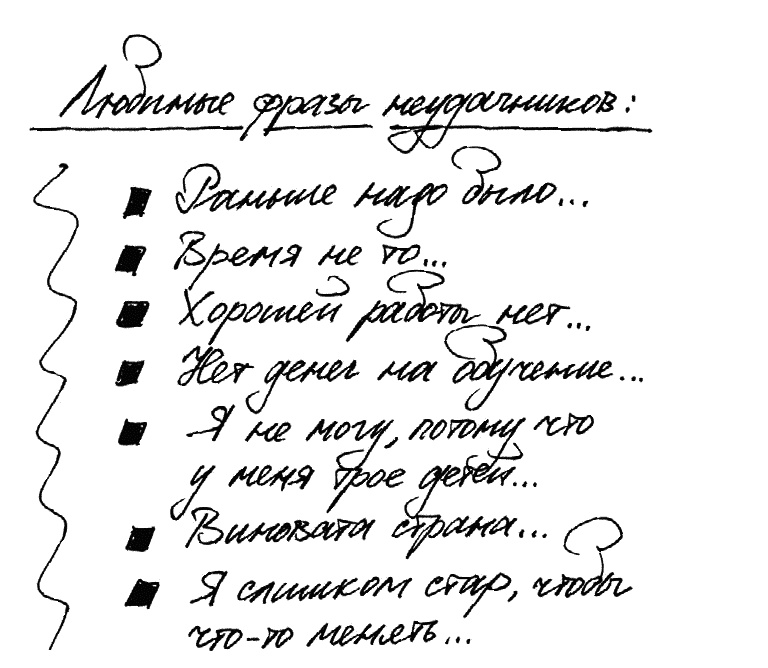 Любимые фразы неудачников:
Раньше надо было...
Время не то...
Хорошей работы нет...
Нет денег на обучение...
Я не могу, потому что
у меня трое детей...
Виновата страна...
Я слишком стар, чтобы
что-то менять...